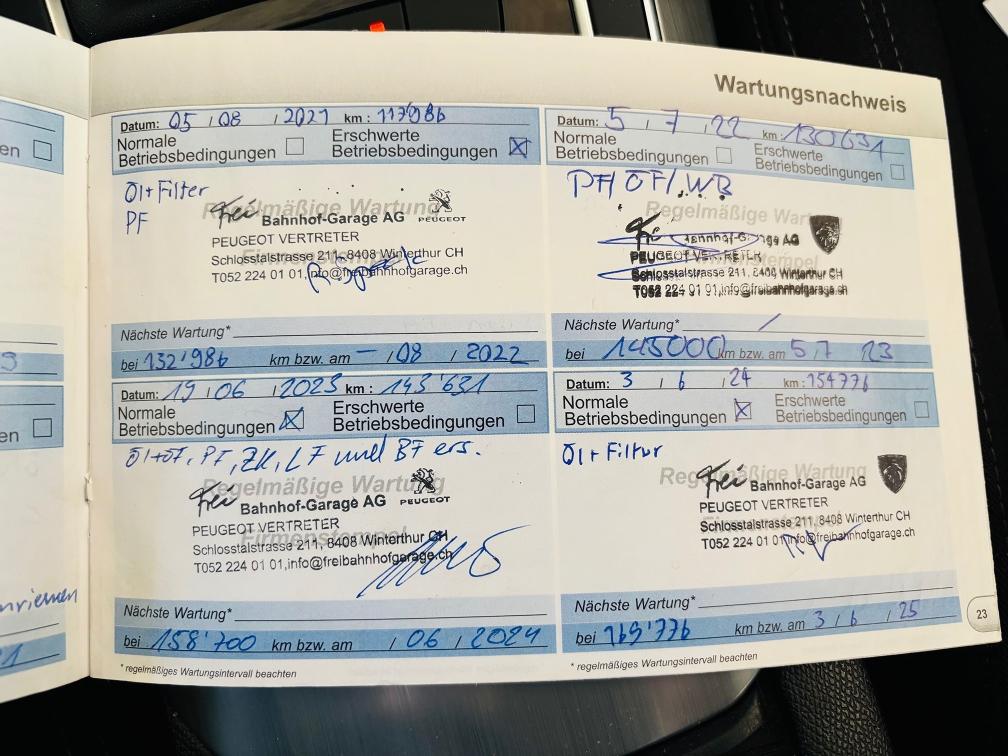 Wartungsnachweis
Datum: 05 / 08 / 2021 km : 117'986
Normale Betriebsbedingungen
Erschwerte Betriebsbedingungen
Öl + Filter
PF
Regelmäßige Wartung
Frei Bahnhof-Garage AG PEUGEOT
PEUGEOT VERTRETER
Schlosstalstrasse 211, 8408 Winterthur CH
T052 224 01 01, info@freibahnhofgarage.ch
Nächste Wartung*
bei 132'986 km bzw. am – / 08 / 2022
Datum: 5 / 7 / 22 km : 130631
Normale Betriebsbedingungen
Erschwerte Betriebsbedingungen
PF/ ÖF/ WB
Regelmäßige Wartung
Frei Bahnhof-Garage AG
PEUGEOT VERTRETER
Schlosstalstrasse 211, 8408 Winterthur CH
T052 224 01 01,info@freibahnhofgarage.ch
Nächste Wartung*
bei 145000 km bzw. am 5 / 7 23
Datum: 19 / 06 / 2023 km : 143'631
Normale Betriebsbedingungen
Erschwerte Betriebsbedingungen
Öl+ÖF, PF, ZK, LF und BF ers.
Regelmäßige Wartung
Frei Bahnhof-Garage AG PEUGEOT
PEUGEOT VERTRETER
Firmenstempel
Schlosstalstrasse 211, 8408 Winterthur CH
T052 224 01 01,info@freibahnhofgarage.ch
Nächste Wartung*
bei 158'700 km bzw. am / 06 / 2024
* regelmäßiges Wartungsintervall beachten
Datum: 3 / 6 / 24 km : 154776
Normale Betriebsbedingungen
Erschwerte Betriebsbedingungen
Öl + Filter
Regelmäßige Wartung
Frei Bahnhof-Garage AG
PEUGEOT VERTRETER
Schlosstalstrasse 211, 8408 Winterthur CH
T052 224 01 01,info@freibahnhofgarage.ch
Nächste Wartung*
bei 169'776 km bzw. am 3 / 6 / 25
* regelmäßiges Wartungsintervall beachten
23